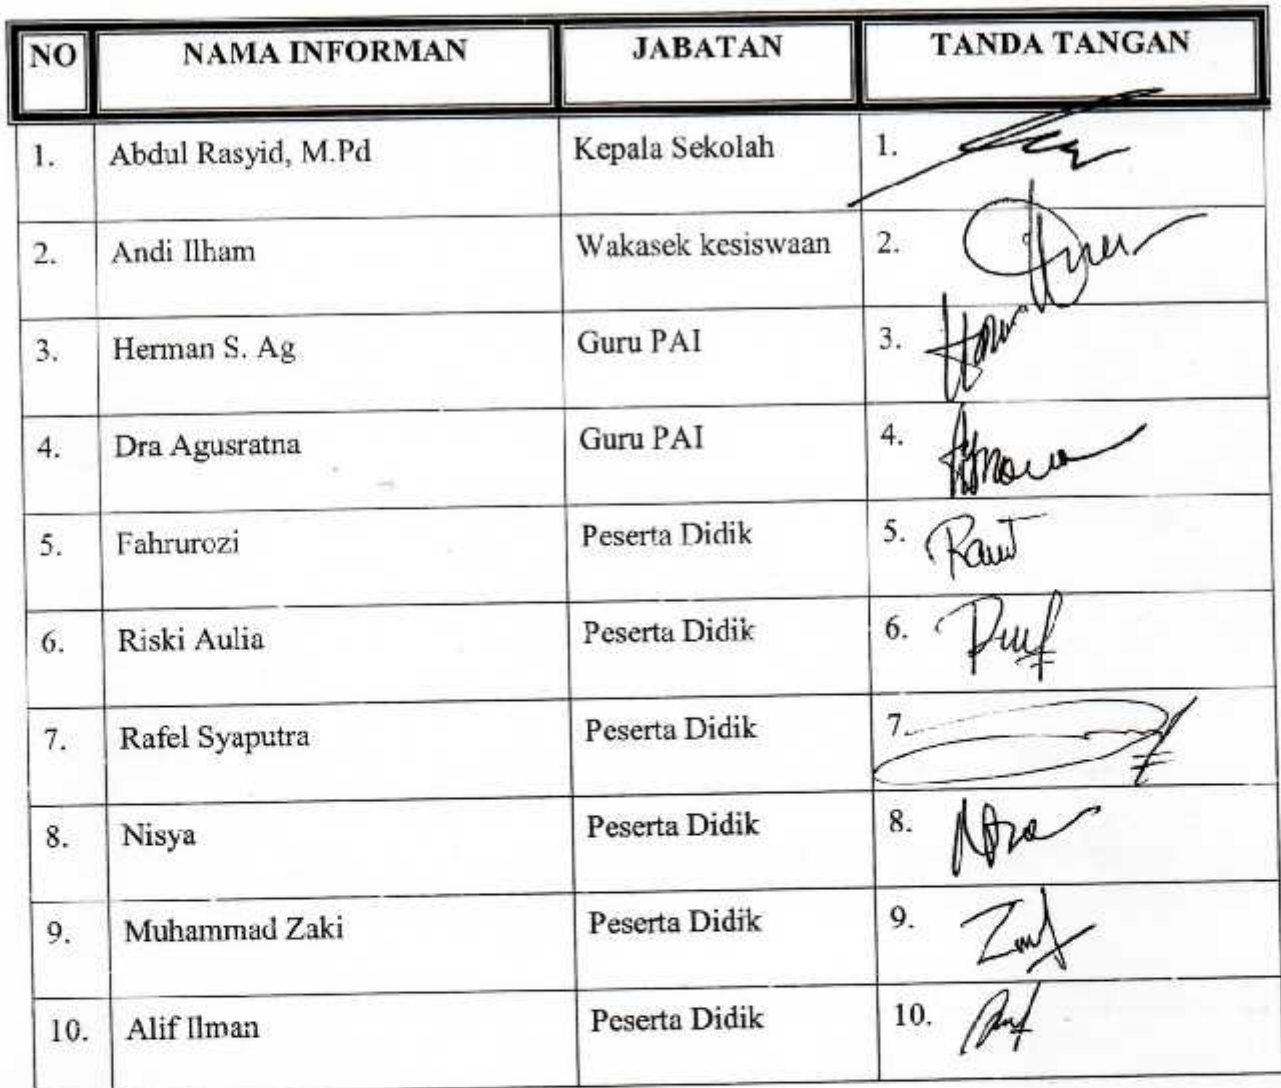 NO NAMA INFORMAN JABATAN TANDA TANGAN
1. Abdul Rasyid, M.Pd Kepala Sekolah 1.
2. Andi Ilham Wakasek kesiswaan 2.
3. Herman S. Ag Guru PAI 3.
4. Dra Agusratna Guru PAI 4.
5. Fahrurozi Peserta Didik 5.
6. Riski Aulia Peserta Didik 6.
7. Rafel Syaputra Peserta Didik 7.
8. Nisya Peserta Didik 8.
9. Muhammad Zaki Peserta Didik 9.
10. Alif Ilman Peserta Didik 10.